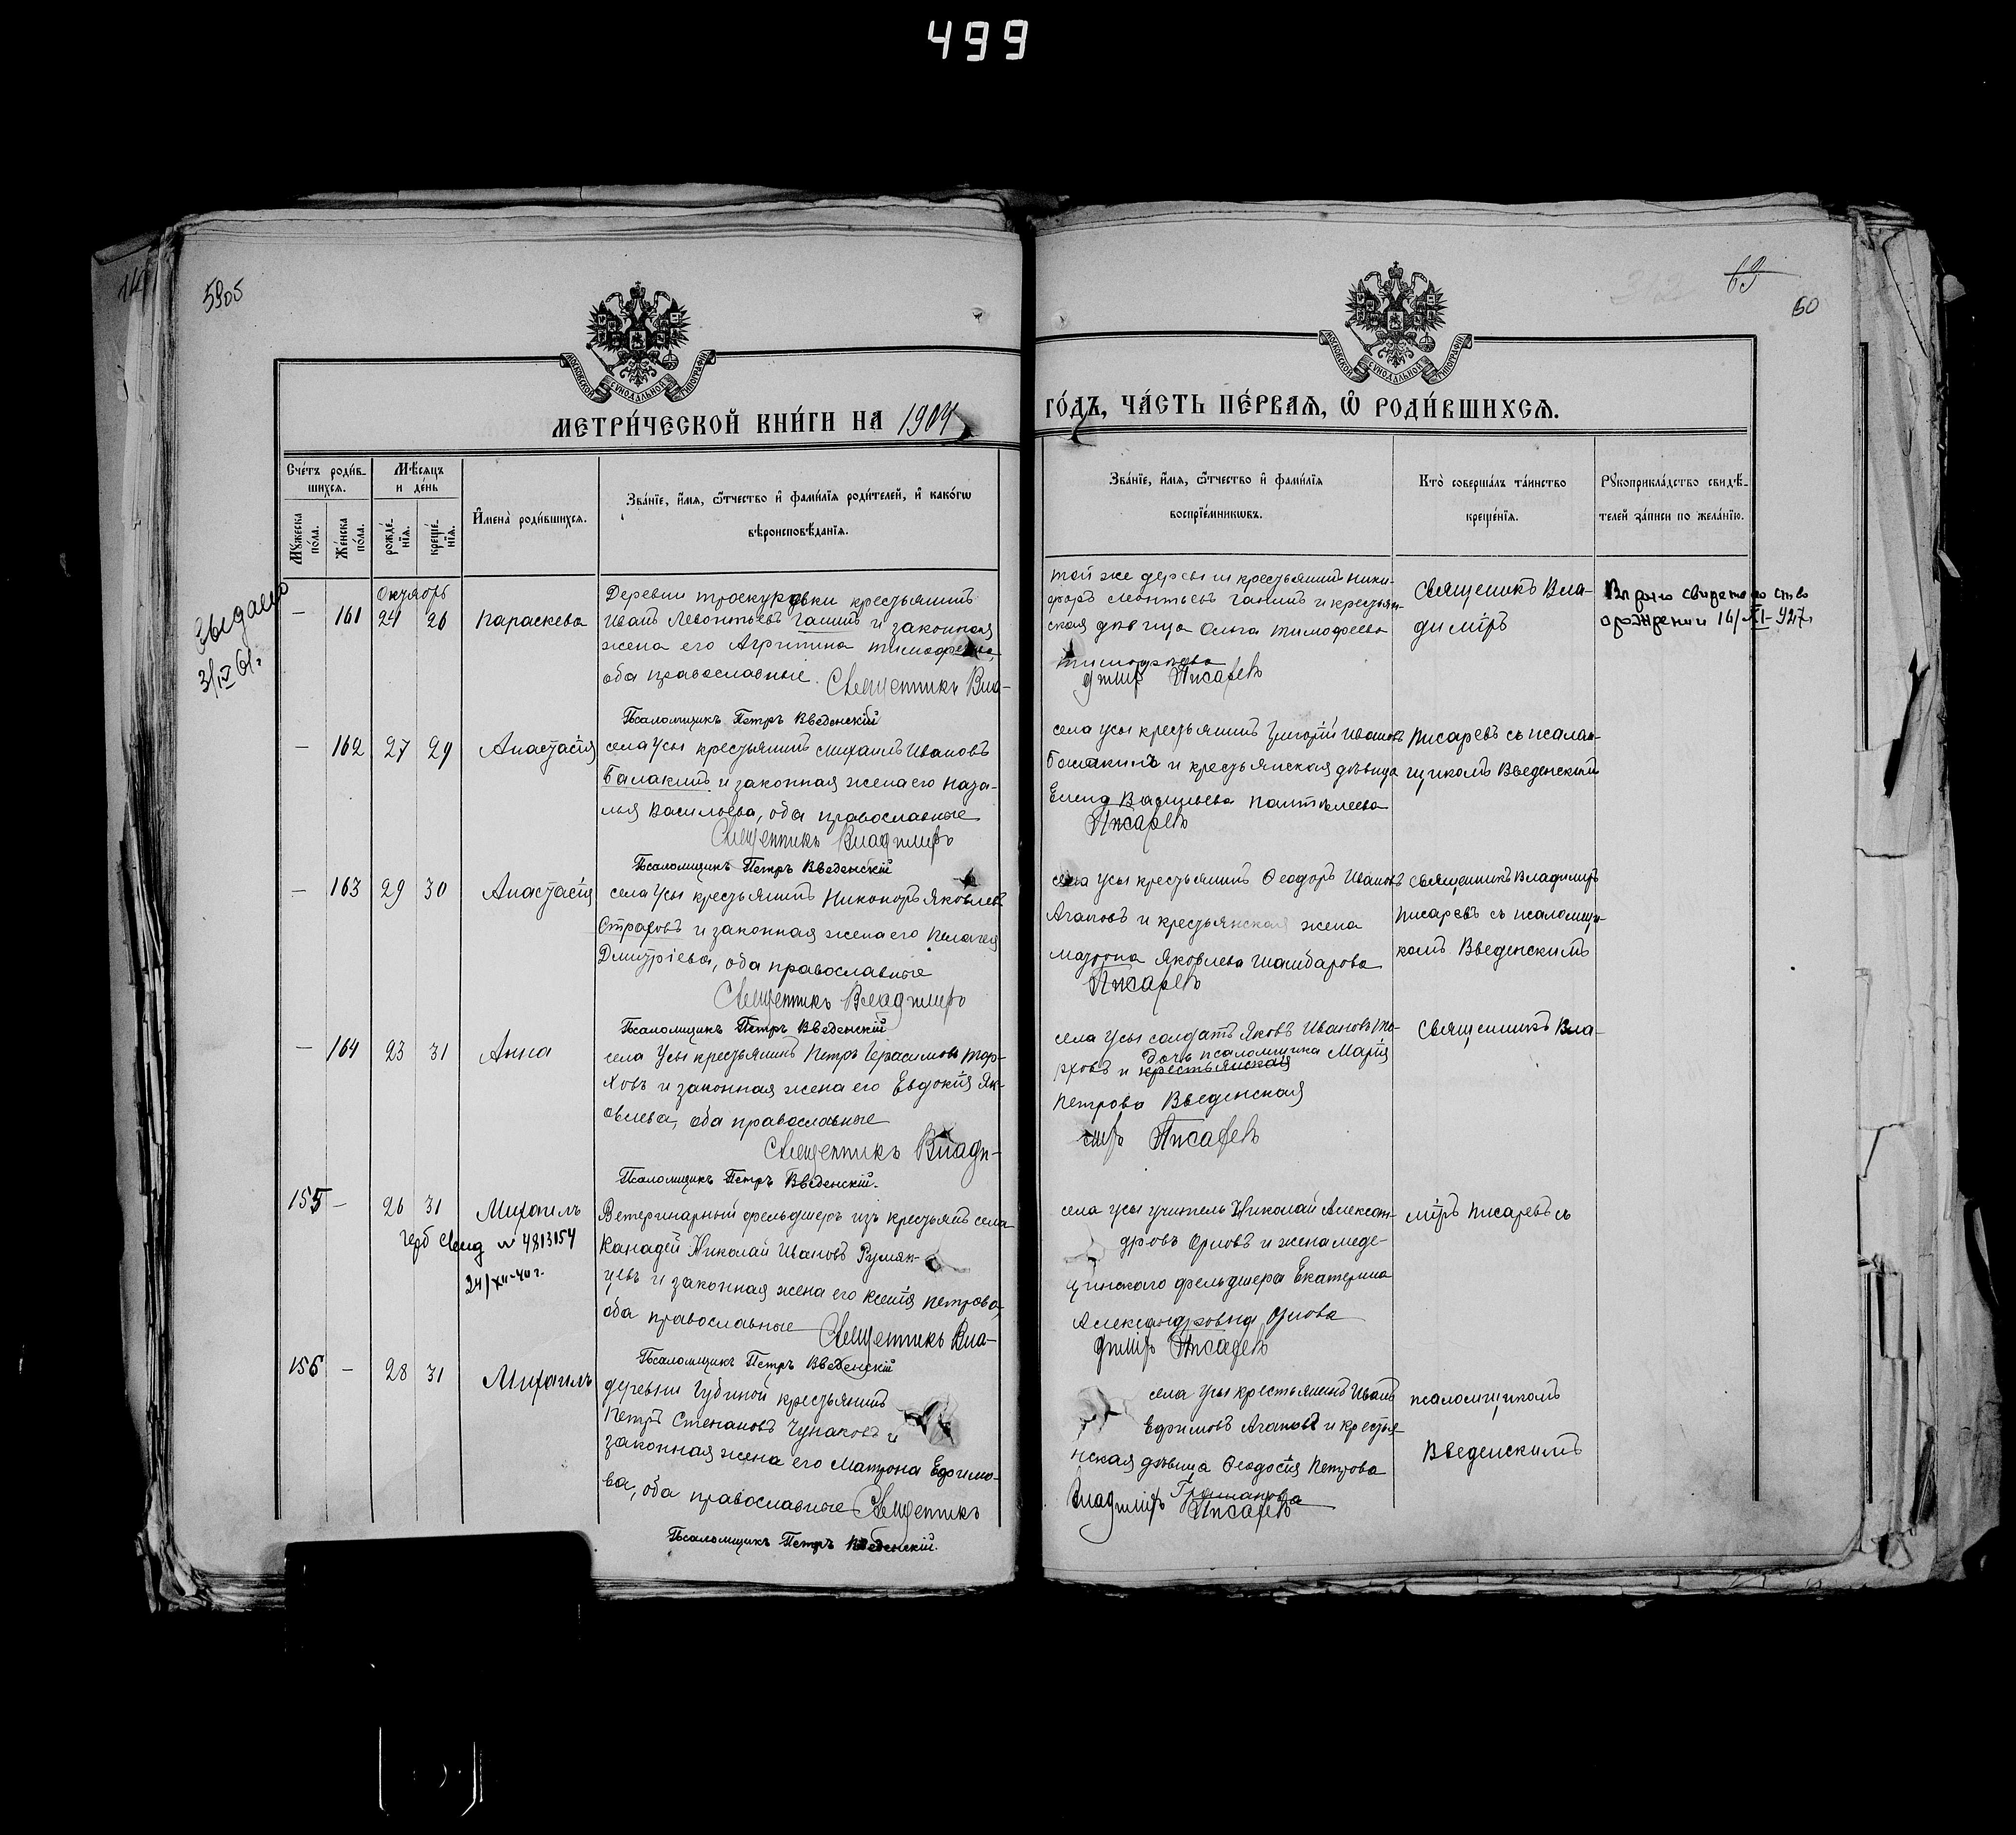 499
5905
63
60
МОСКОВСКОЙ СѴНОДАЛЬНОЙ ТИПОГРАФІИ
МОСКОВСКОЙ СѴНОДАЛЬНОЙ ТИПОГРАФІИ
МЕТРИ́ЧЕСКОЙ КНИ́ГИ НА 1904
ГО́ДЪ, ЧА́СТЬ ПЕ́РВАЯ, Ѡ РОДИ́ВШИХСЯ.
Сче́тъ роди́в-
шихся.
Мꙋ́жеска по́ла.
Же́нска по́ла.
Мѣ́сяцъ
и де́нь
рожде́-
нїя.
креще́-
нїя.
И҆мена̀ роди́вшихся.
Зва́нїе, и҆́мя, ѻ҆́тчество и҆ фами́лїя роди́телей, и҆ како́гѡ
вѣроисповѣ́данїя.
Зва́нїе, и҆́мя, ѻ҆́тчество и҆ фами́лїя
воспрїе́мникѡвъ.
Кто̀ соверша́лъ та́инство
креще́нїя.
Рꙋкоприкла́дство свидѣ́-
телей за́писи по жела́нїю.
Выдано
3/IV 61г.
Октябрь
— 161 24 26 Параскева
Деревни Проскуровки крестьянинъ
Иванъ Левонтьевъ Ганинъ и законная
жена его Агрипина Тимофеева,
оба православные. Священникъ Вла-
Псаломщикъ Петръ Введенскій
той же деревни крестьянинъ Ники-
форъ Леонтьевъ Ганинъ и крестьян-
ская дѣвица Ольга Тимофеева
димiръ Писаревъ
Священникъ Вла-
димiръ
Выдано свидетельство
о рождении 14/XI-927г.
— 162 27 29 Анастасія
села Усы крестьянинъ Михаилъ Ивановъ
Балакинъ и законная жена его Ната-
лья Васильева, оба православные
Священникъ Владимiръ
Псаломщикъ Петръ Введенскій
села Усы крестьянинъ Григорій Ивановъ
Балакинъ и крестьянская дѣвица
Елена Васильева Пантелеева
Писаревъ
Писаревъ съ псалом-
щикомъ Введенскимъ
— 163 29 30 Анастасія
села Усы крестьянинъ Никоноръ Яковлевъ
Страховъ и законная жена его Пелагея
Дмитріева, оба православные
Священникъ Владимiръ
Псаломщикъ Петръ Введенскій
села Усы крестьянинъ Ѳеодоръ Ивановъ
Агаповъ и крестьянская жена
Матрона Яковлева Шамбарова
Писаревъ
Священникъ Владимiръ
Писаревъ съ псаломщи-
комъ Введенскимъ
— 164 23 31 Анна
села Усы крестьянинъ Петръ Герасимовъ Тор-
ховъ и законная жена его Евдокія Як-
овлева, оба православные
Священникъ Влади-
Псаломщикъ Петръ Введенскій.
села Усы солдатъ Яковъ Ивановъ То-
рховъ и крестьянская дочь псаломщика Марія
Петрова Введенская
мiръ Писаревъ
Священникъ Вла-
155 — 26 31 Михаилъ
герб свид № 4813154
24/XII-40г.
Ветеринарный фельдшеръ изъ крестьянъ села
Канадей Николай Ивановъ Румян-
цевъ и законная жена его Ксенія Петрова,
оба православные Священникъ Вла-
Псаломщикъ Петръ Введенскій
села Усы учитель Николай Алексан-
дровъ Орловъ и жена меде-
цинскаго фельдшера Екатерина
Александровна Орлова
димiръ Писаревъ
мiръ Писаревъ съ
156 — 28 31 Михаилъ
деревни Губиной крестьянинъ
Петръ Степановъ Чунаковъ и
законная жена его Матрона Ефимо-
ва, оба православные Священникъ
Псаломщикъ Петръ Введенскій.
села Усы крестьянинъ Иванъ
Ефимовъ Агаповъ и крестья-
нская дѣвица Ѳеодосія Петрова
Владимiръ Писаревъ
псаломщикомъ
Введенскимъ